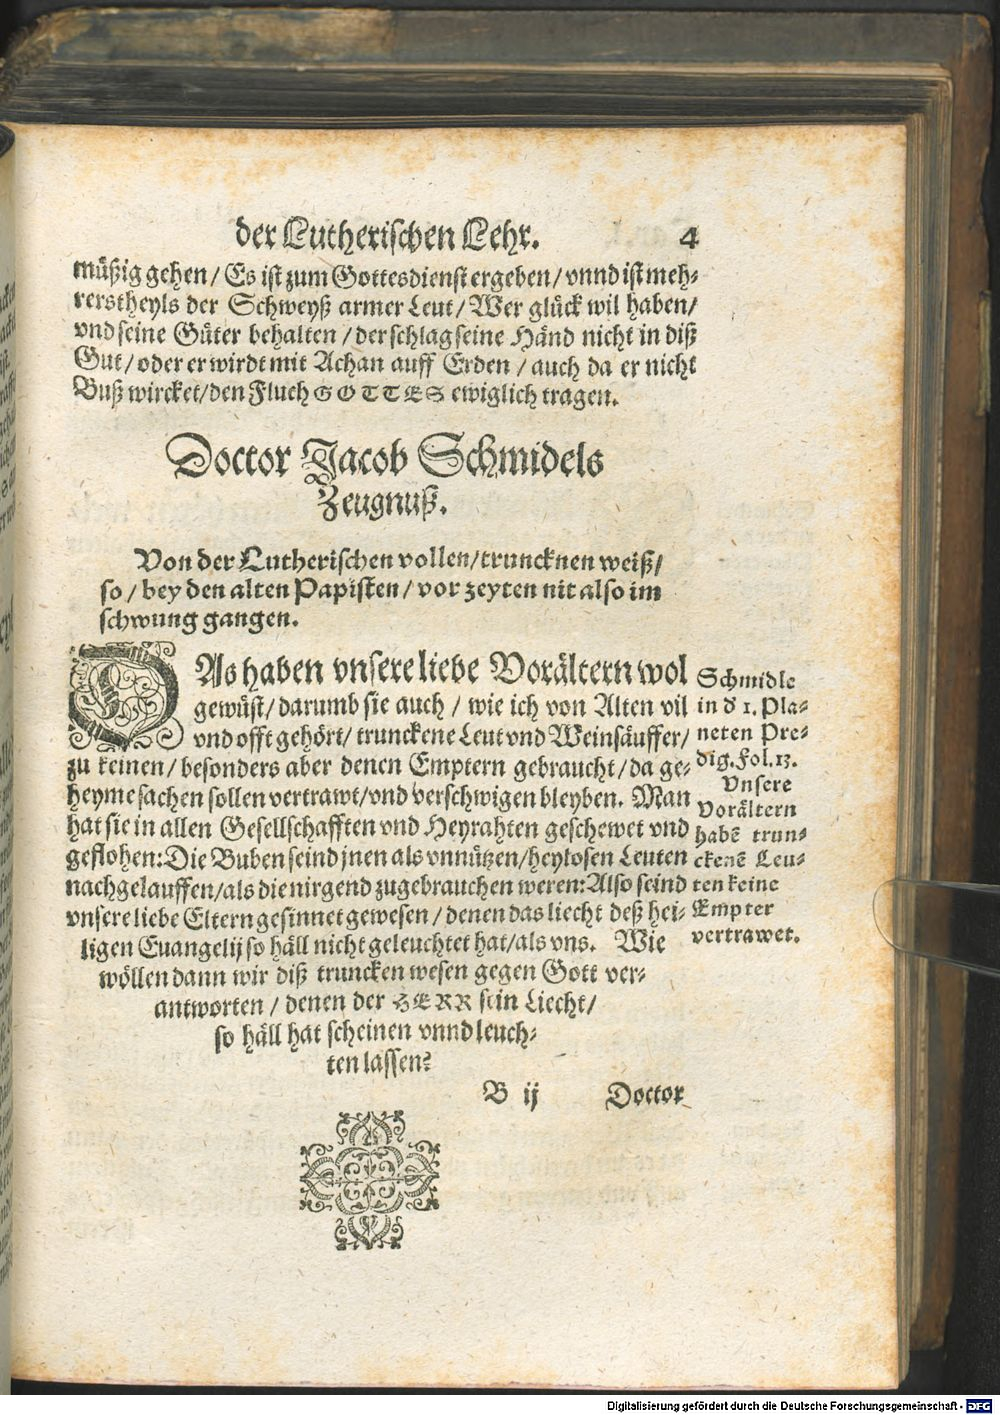 der Lutherischen Lehr. 4
müßig gehen / Es ist zum Gottesdienst ergeben / vnnd ist meh-
rerstheyls der Schweyß armer Leut / Wer glück wil haben /
vnd seine Güter behalten / der schlag seine Händ nicht in diß
Gut / oder er wirdt mit Achan auff Erden / auch da er nicht
Buß wircket / den Fluch GOTTES ewiglich tragen.
Doctor Jacob Schmidels
Zeugnuß.
Von der Lutherischen vollen / truncknen weiß /
so / bey den alten Papisten / vor zeyten nit also im
schwung gangen.
DAs haben vnsere liebe Vorältern wol
gewüst / darumb sie auch / wie ich von Alten vil
vnd offt gehört / trunckene Leut vnd Weinsäuffer /
zu keinen / besonders aber denen Emptern gebraucht / da ge-
heyme sachen sollen vertrawt / vnd verschwigen bleyben. Man
hat sie in allen Gesellschafften vnd Heyrahten geschewet vnd
geflohen: Die Buben seind jnen als vnnützen / heylosen Leuten
nachgelauffen / als die nirgend zugebrauchen weren: Also seind
vnsere liebe Eltern gesinnet gewesen / denen das liecht deß hei-
ligen Euangelij so häll nicht geleuchtet hat / als vns. Wie
wöllen dann wir diß truncken wesen gegen Gott ver-
antworten / denen der HERR sein Liecht /
so häll hat scheinen vnnd leuch-
ten lassen?
Schmidle
in d 1. Pla-
neten Pre-
dig. Fol. 13.
Vnsere
Vorältern
habē trun-
ckenē Leu-
ten keine
Empter
vertrawet.
B ij Doctor
Digitalisierung gefördert durch die Deutsche Forschungsgemeinschaft - DFG